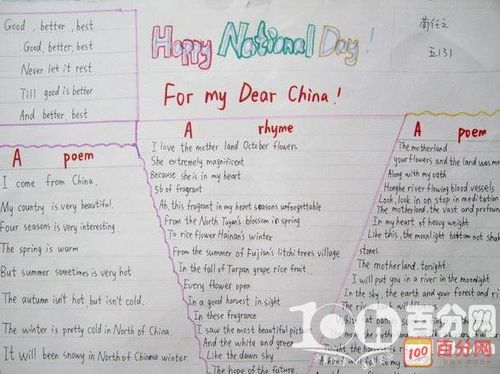 Good, better, best
Good, better, best
Never let it rest
Till good is better
And better, best
Happy National Day!
For my Dear China!
A poem
I come from China.
My country is very beautiful.
Four seasons is very interesting
The spring is warm
But summer sometimes is very hot
The autumn isn't hot but isn't cold.
The winter is pretty cold in North of China.
It will been snowy in North of Chinese winter.
A rhyme
I love the mother land October flowers
She extremely magnificent
Because she is in my heart
56 of fragrant
Ah, this fragrant in my heart seasons unforgettable
From the North Tuyan's blossom in spring
To rice flower Hainan's winter
From the summer of Fujian's litchi trees village
In the fall of Turpan grape rice fruit..
Every flower open
In a good harvest in sight
In these fragrance
I saw the most beautiful
And the white and green
Like the dawn sky
The hope of the future.
A poem
The motherland
your flowers and the land was
Along with my oath
Honghe river flowing blood vessels
Look, look in on stop in meditation
The motherland, the vast and
In my heart of heavy weight
Like this, the moonlight bottom not
stones
The motherland, tonight
I will put you in a river in the moonlight
In the sky, the earth your forest and
五(3)
100百分网
100
百分网